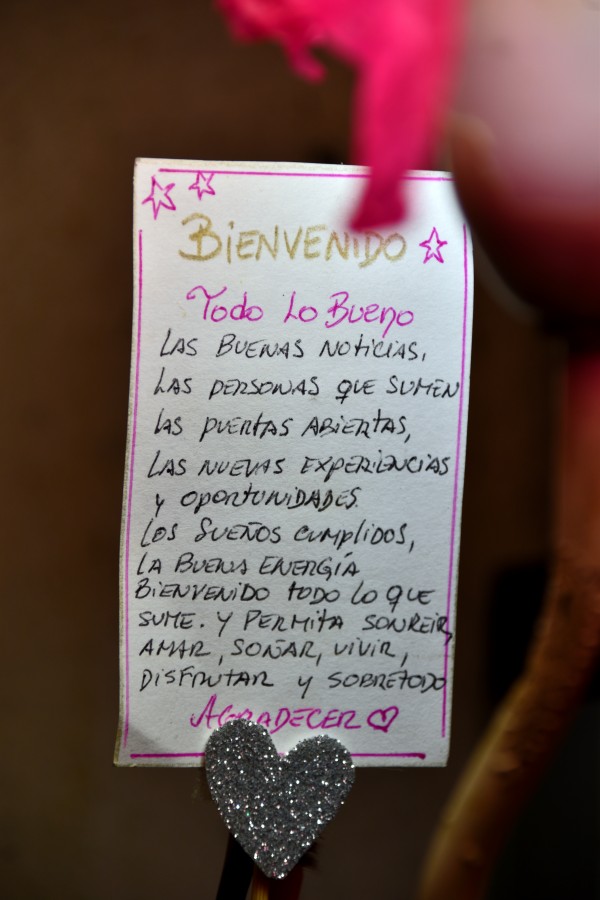 BIENVENIDO
Todo Lo Bueno
LAS BUENAS NOTICIAS,
LAS PERSONAS QUE SUMEN
LAS PUERTAS ABIERTAS,
LAS NUEVAS EXPERIENCIAS
y OPORTUNIDADES.
LOS SUEÑOS CUMPLIDOS,
LA BUENA ENERGÍA
BIENVENIDO TODO LO QUE
SUME. Y PERMITA SONREIR,
AMAR, SOÑAR, VIVIR,
DISFRUTAR y SOBRETODO
AGRADECER